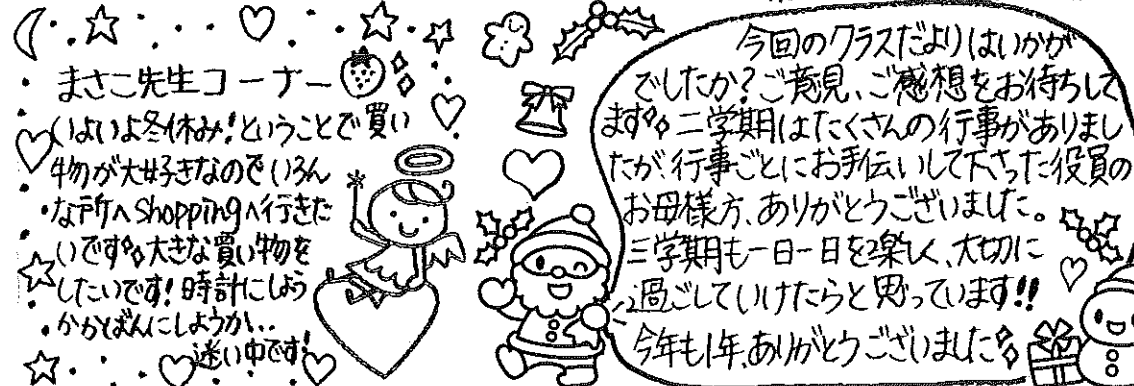 まさこ先生コーナー
いよいよ冬休み!ということで買い
物が大好きなのでいろん
な所へShoppingへ行きた
いです。大きな買い物を
したいです!時計にしよう
かかばんにしようか...
迷い中です!
今回のクラスだよりはいかが
でしたか?ご意見、ご感想をお待ちして
ます。二学期はたくさんの行事がありまし
たが、行事ごとにお手伝いして下さった役員の
お母様方、ありがとうございました。
三学期も一日一日を楽しく、大切に
過ごしていけたらと思っています!!
今年も1年、ありがとうございました